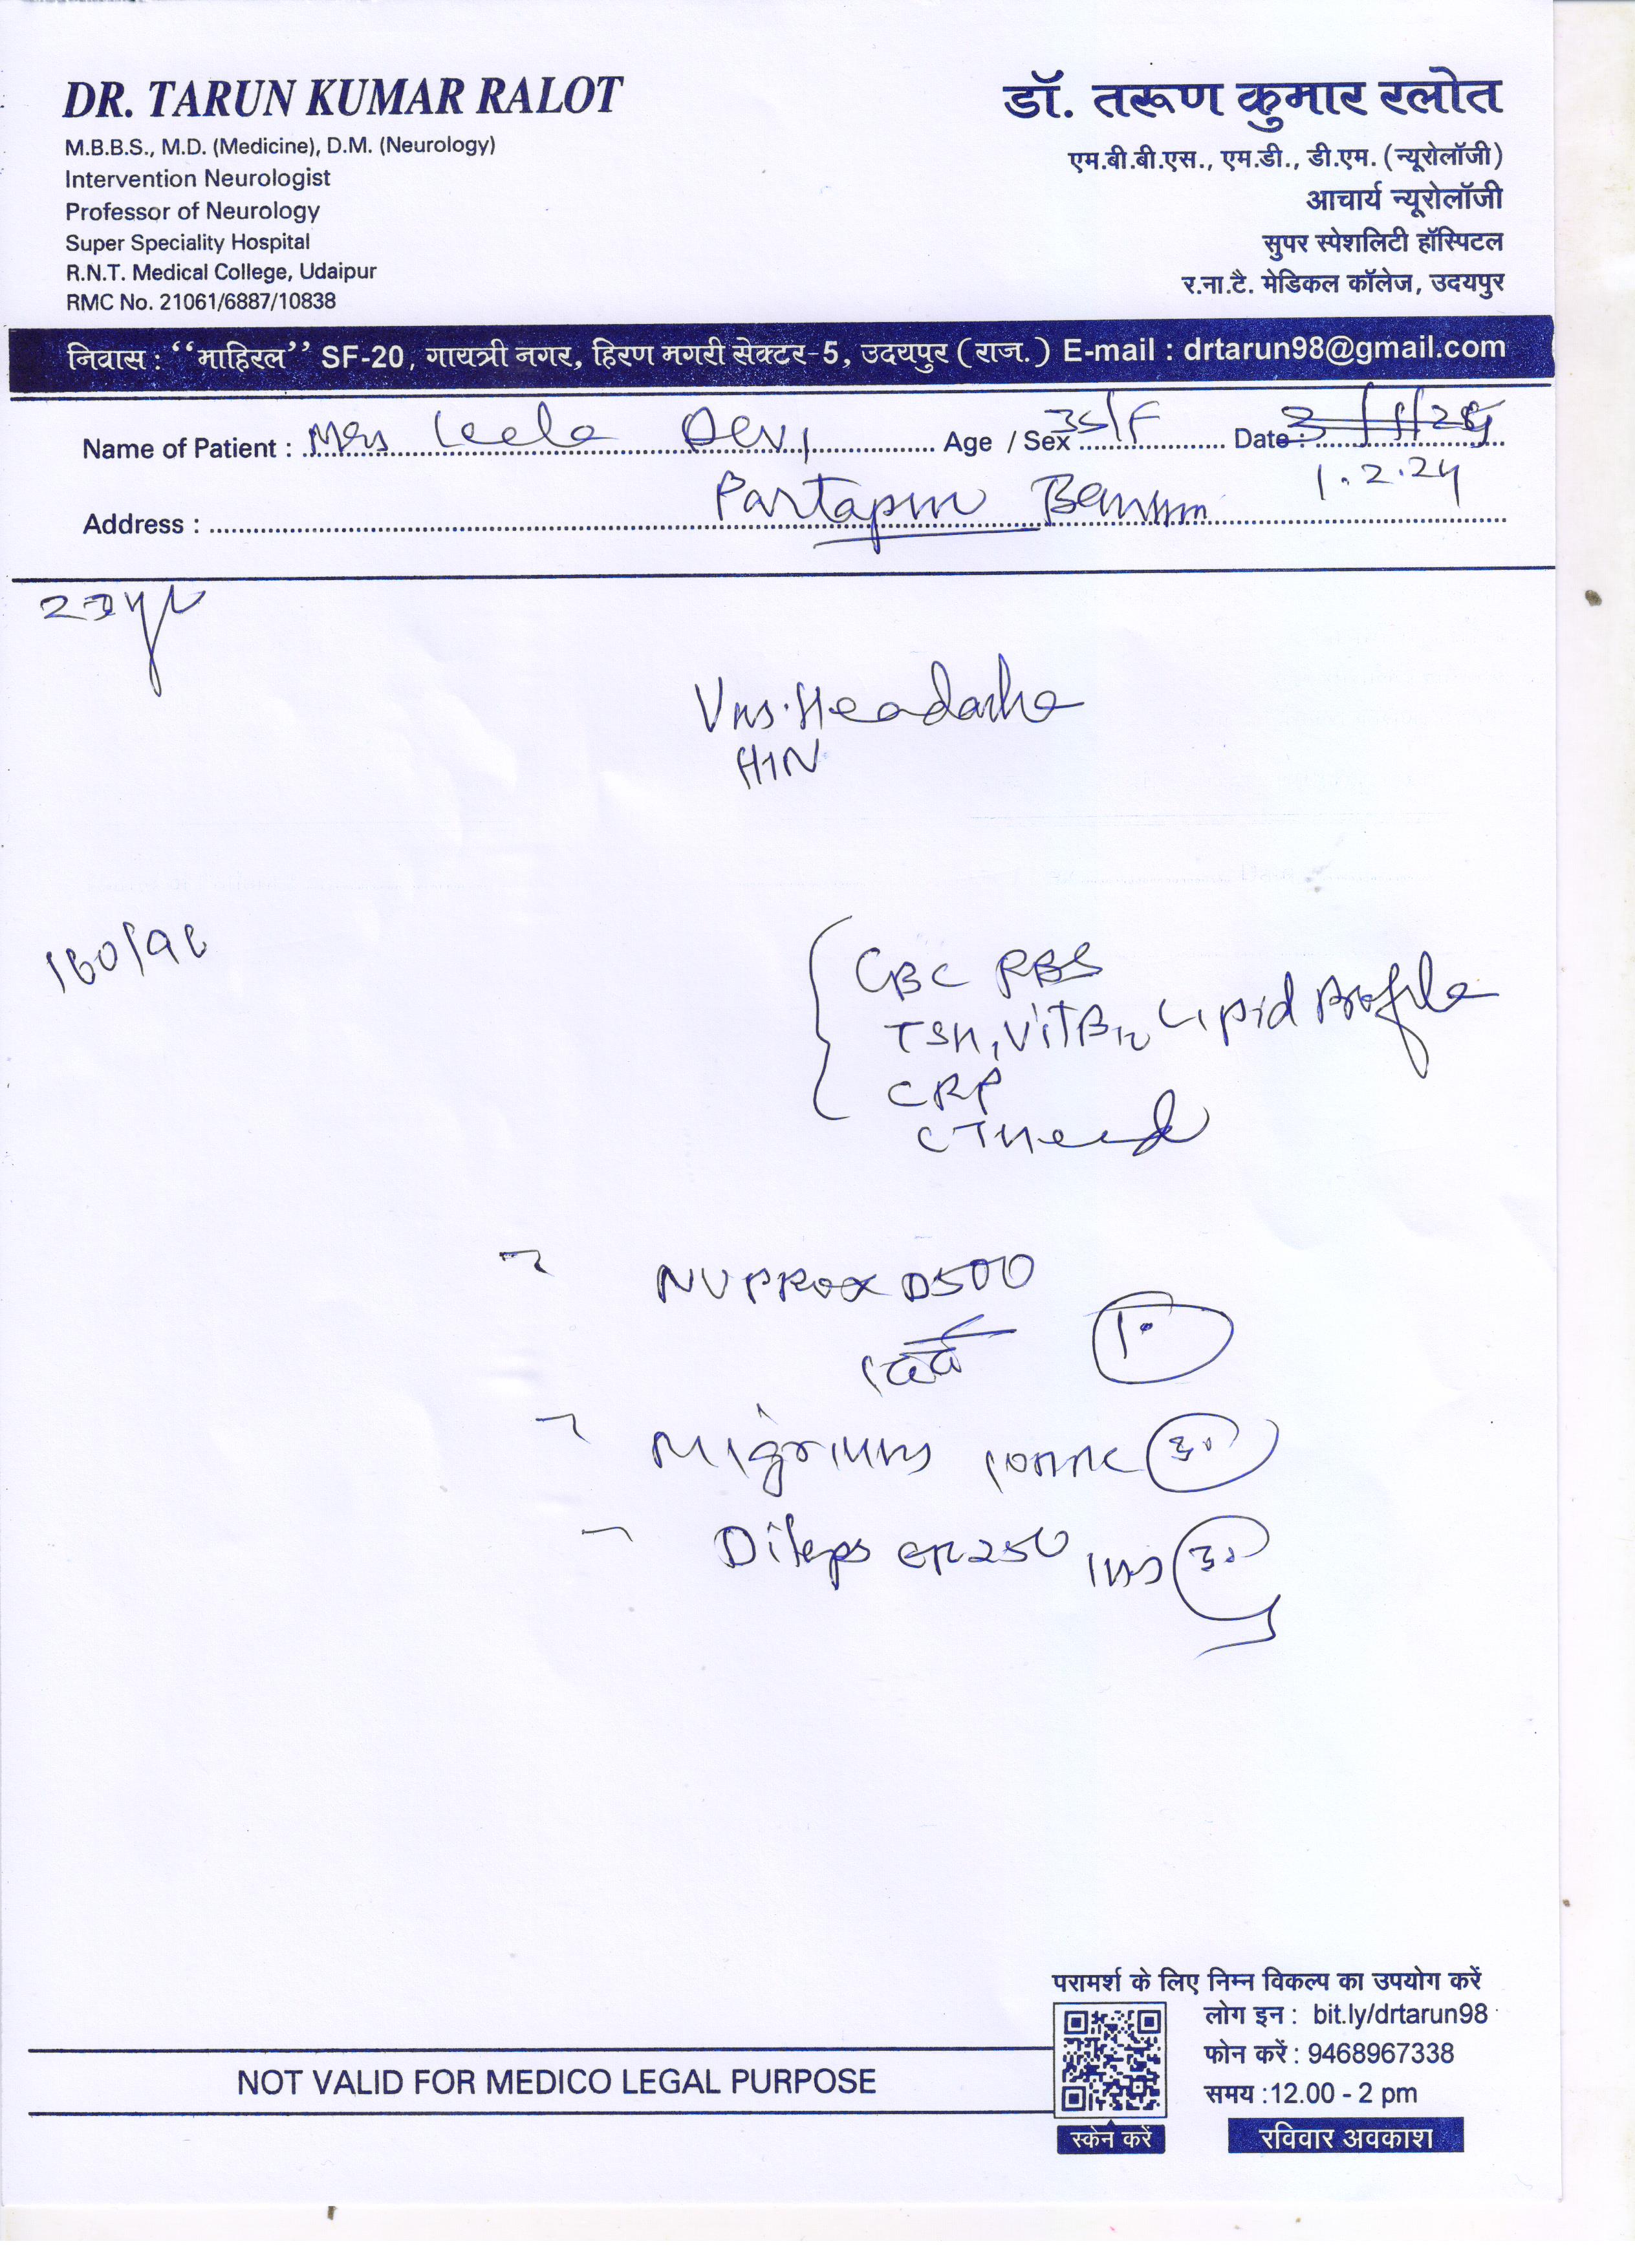 DR. TARUN KUMAR RALOT
M.B.B.S., M.D. (Medicine), D.M. (Neurology)
Intervention Neurologist
Professor of Neurology
Super Speciality Hospital
R.N.T. Medical College, Udaipur
RMC No. 21061/6887/10838
डॉ. तरूण कुमार रलोत
एम.बी.बी.एस., एम.डी., डी.एम. (न्यूरोलॉजी)
आचार्य न्यूरोलॉजी
सुपर स्पेशलिटी हॉस्पिटल
र.ना.टै. मेडिकल कॉलेज, उदयपुर
निवास : “माहिरल” SF-20, गायत्री नगर, हिरण मगरी सेक्टर-5, उदयपुर (राज.) E-mail : drtarun98@gmail.com
Name of Patient : Mrs Leela Devi Age / Sex 35/F Date :
1.2.24
Address : Partapur
Headache
HTN
CBC RBS
TSH, VitB12 Lipid Profile
CRP
CT Head
160/96
NUPROX D500
1 दर्द 10
30
ER 250 1 HS 30
परामर्श के लिए निम्न विकल्प का उपयोग करें
लोग इन : bit.ly/drtarun98
फोन करें : 9468967338
समय :12.00 - 2 pm
स्केन करें
रविवार अवकाश
NOT VALID FOR MEDICO LEGAL PURPOSE